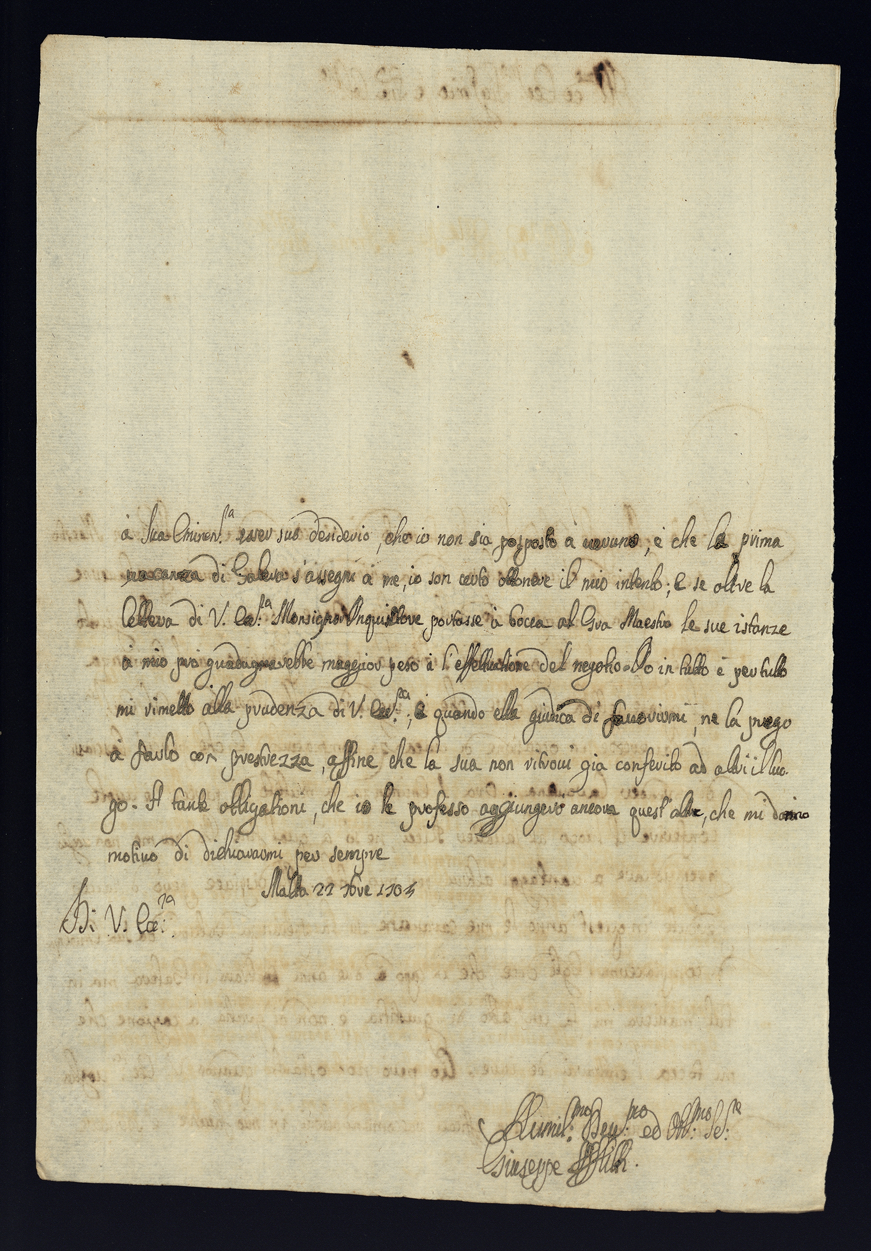 à Sua Eminen.ᶻᵃ esser suo desiderio, che io non sia posposto à veruno, e che la prima
vacanza di Galera s'assegni à me, io son certo ottenere il mio intento; E se oltre la
lettera di V. Ecc.ᶻᵃ Monsignor Inquisitore portasse à bocca al Gra Maestro le sue istanze
à mio prò guadagnarebbe maggior peso à l'effettuatione del negotio. Io in tutto e per tutto
mi rimetto alla prudenza di V. Ecc.ᶻᵃ, è quando ella giudica di favorirmi, ne la prego
à farlo con prestezza, affine che la sua non ritrovi già conferito ad altri il luo-
go. Al tante obligationi, che io le professo aggiungerò ancora quest'altre, che mi danno
motivo di dichiararmi per sempre
Malta 22 Xbre
Di V. Ecc.ᶻᵃ
Humil.ᵐᵒ Dev.ᵐᵒ ed Obl.ᵐᵒ Se.ʳᵉ
Giuseppe